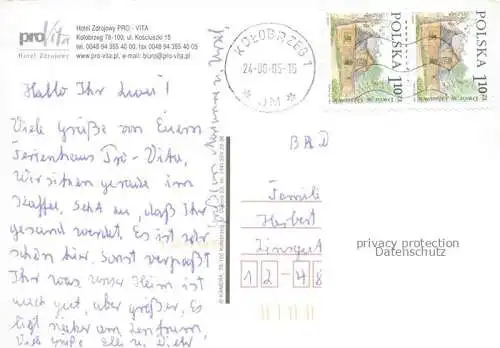 pro Vita
Hotel Zdrojowy
Hotel Zdrojowy PRO - VITA
Kołobrzeg 78-100, ul. Kościuszki 15
tel. 0048 94 355 40 00, fax 0048 94 355 40 05
www.pro-vita.pl, e-mail: biuro@pro-vita.pl
KOŁOBRZEG 1
POLSKA
110 ZŁ
POLSKA
110 ZŁ
Hallo Ihr Zwei!
Viele Grüße von Eurem
Ferienhaus Pro-Vita,
Wir sitzen gerade im
Kaffee. Seht zu, daß Ihr
gesund werdet. Es ist sehr
schön hier. Sonst verpaßt
Ihr was. Unser Heim ist
auch gut, aber größer. Es
liegt näher am Zentrum,
Viele Grüße u. Dieter
BRD
Familie
Herbert
12-48
privacy protection
Datenschutz